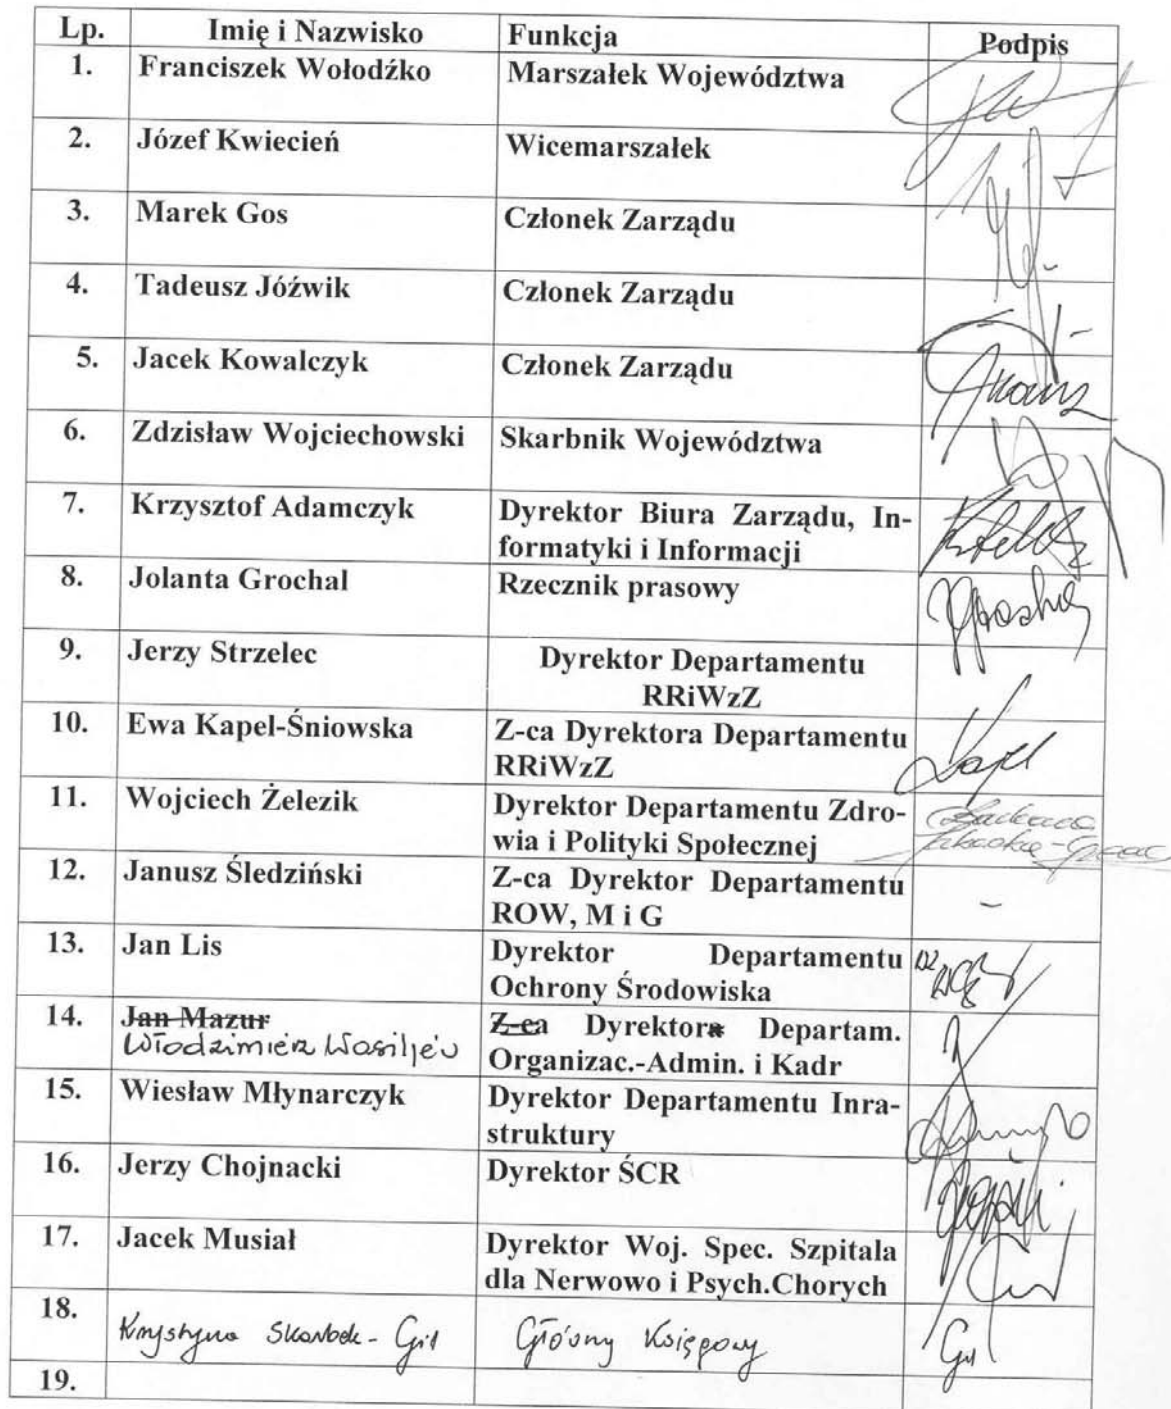 Lp. Imię i Nazwisko Funkcja Podpis
1. Franciszek Wołodźko Marszałek Województwa
2. Józef Kwiecień Wicemarszałek
3. Marek Gos Członek Zarządu
4. Tadeusz Jóźwik Członek Zarządu
5. Jacek Kowalczyk Członek Zarządu
6. Zdzisław Wojciechowski Skarbnik Województwa
7. Krzysztof Adamczyk Dyrektor Biura Zarządu, In-
formatyki i Informacji
8. Jolanta Grochal Rzecznik prasowy
9. Jerzy Strzelec Dyrektor Departamentu
RRiWzZ
10. Ewa Kapel-Śniowska Z-ca Dyrektora Departamentu
RRiWzZ
11. Wojciech Żelezik Dyrektor Departamentu Zdro-
wia i Polityki Społecznej
12. Janusz Śledziński Z-ca Dyrektor Departamentu -
ROW, M i G
13. Jan Lis Dyrektor Departamentu
Ochrony Środowiska
14. Jan Mazur Z-ca Dyrektora Departam.
Włodzimierz Wasiljew Organizac.-Admin. i Kadr
15. Wiesław Młynarczyk Dyrektor Departamentu Inra-
struktury
16. Jerzy Chojnacki Dyrektor ŚCR
17. Jacek Musiał Dyrektor Woj. Spec. Szpitala
dla Nerwowo i Psych.Chorych
18. Krystyna Skarbek-Gil Główny Księgowy Gil
19.